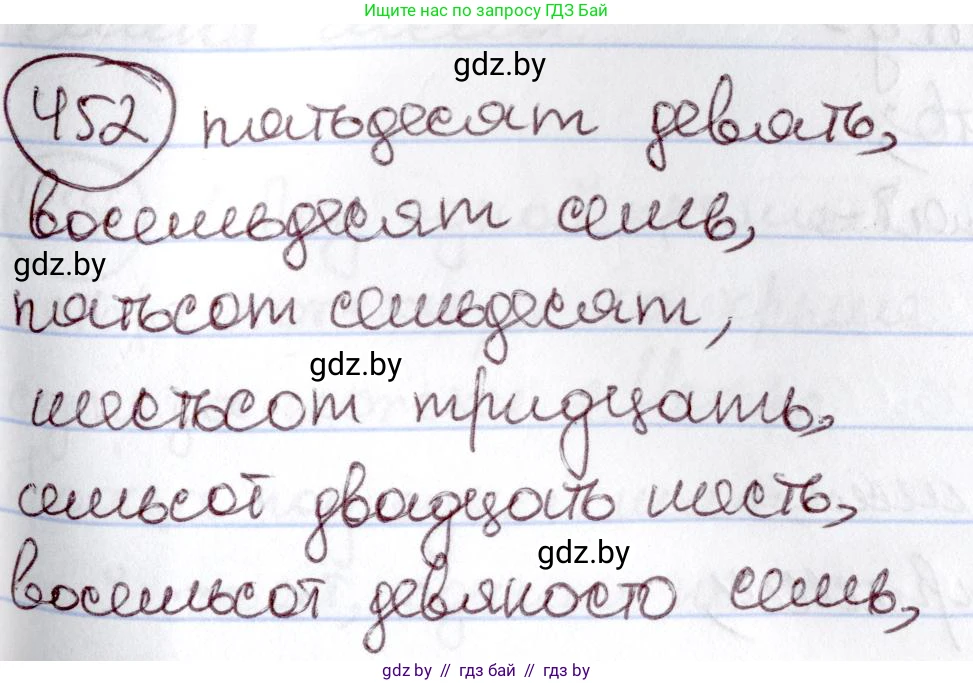 Ищите нас по запросу ГДЗ Бай
gdz.by
452 пятьдесят девять,
восемьдесят семь,
gdz.by
пятьсот семьдесят,
gdz.by
шестьсот тридцать,
семьсот двадцать шесть,
gdz.by
восемьсот девяносто семь,
gdz.by // гдз бай // гдз by